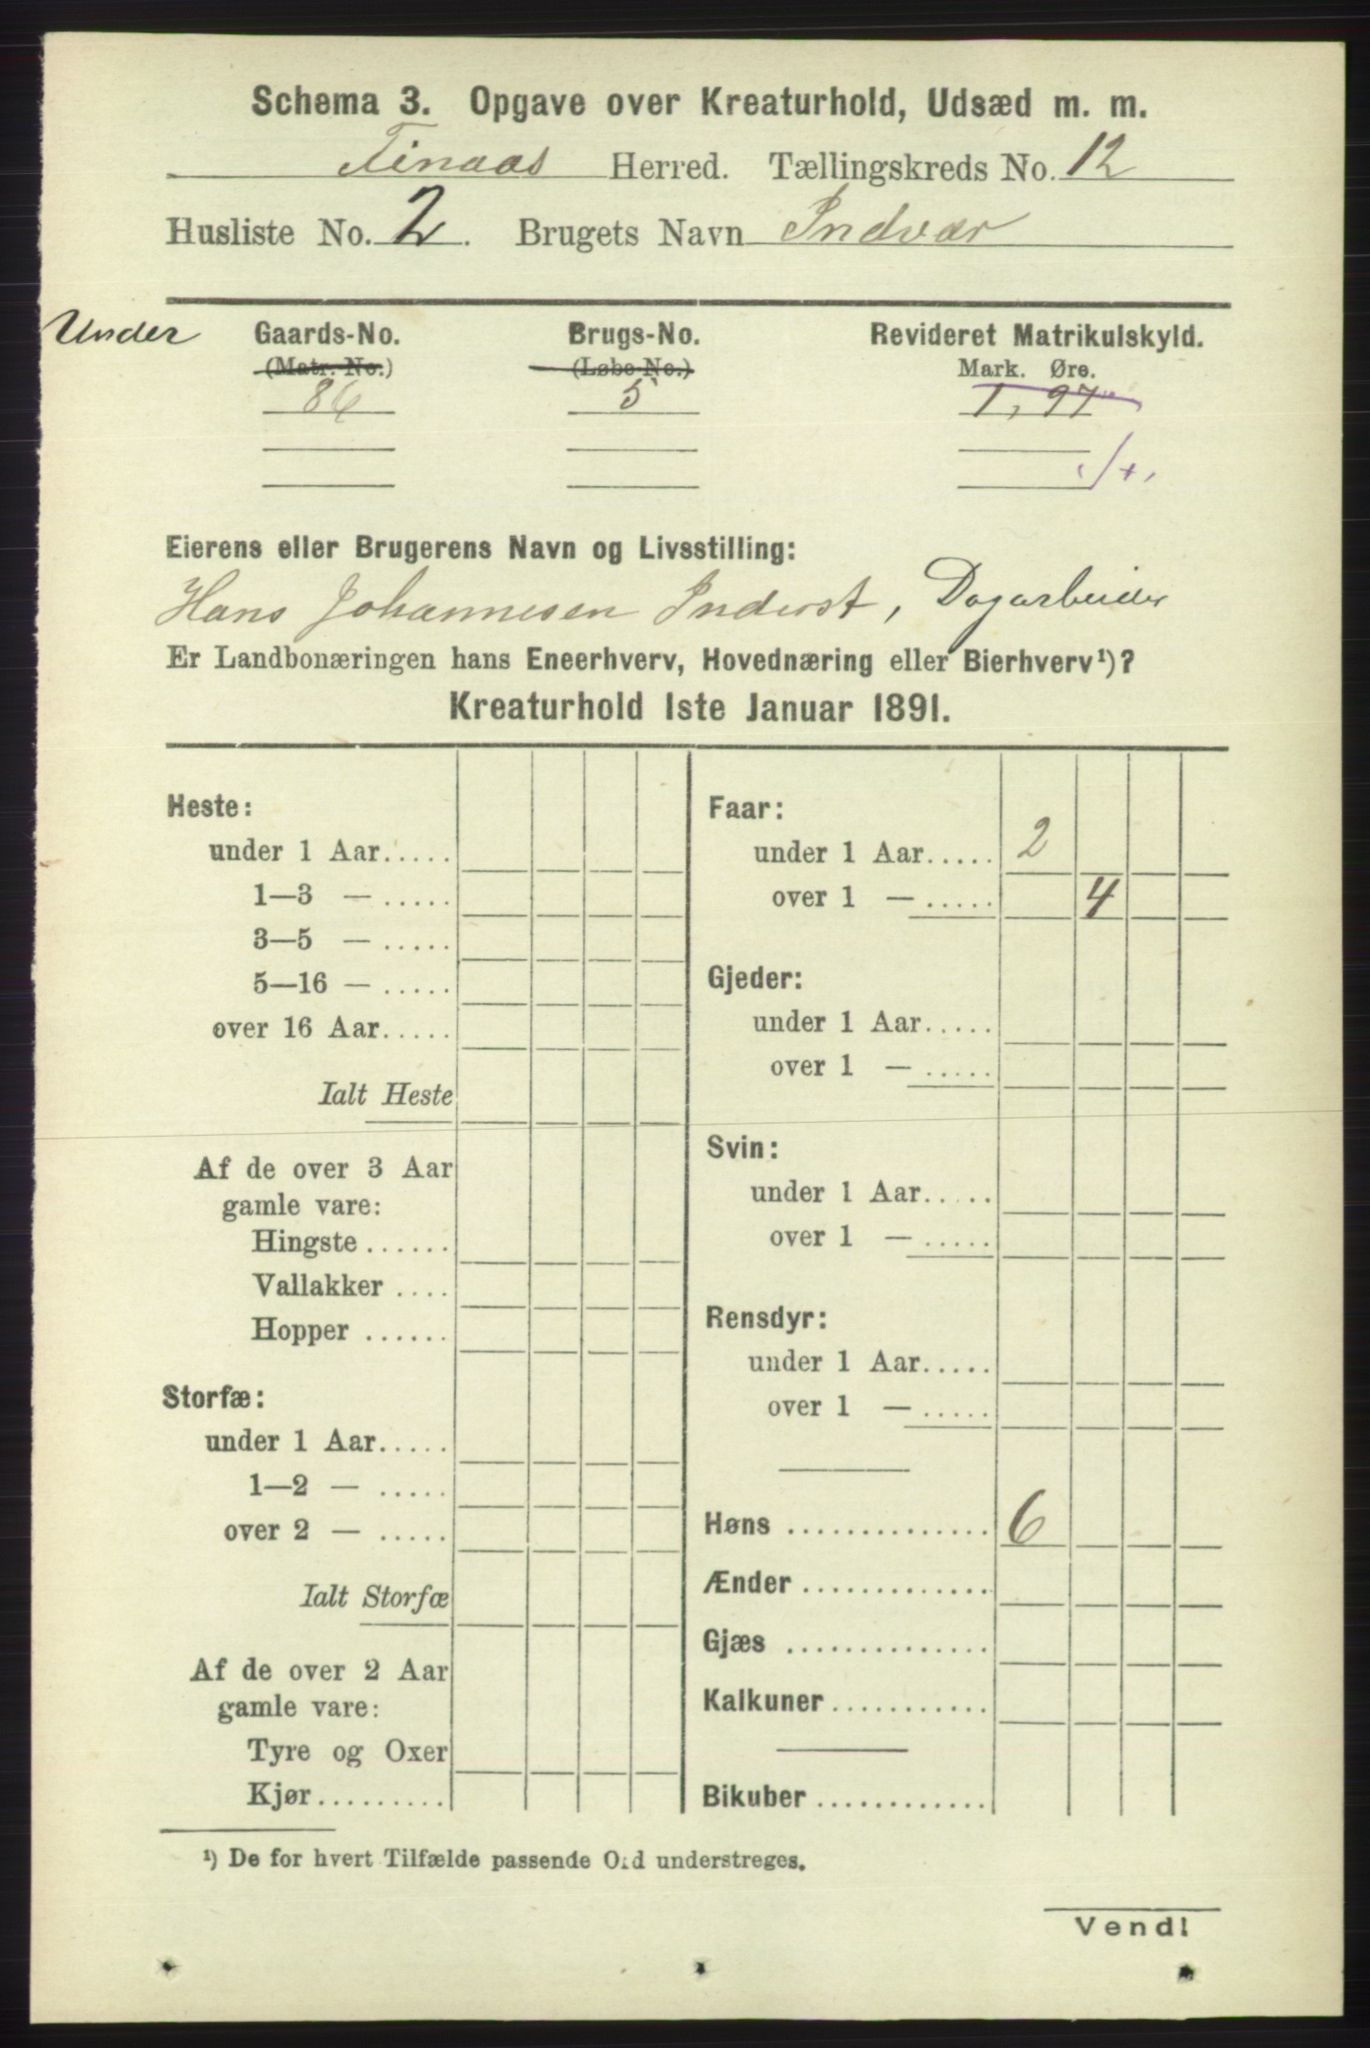 Schema 3. Opgave over Kreaturhold, Udsæd m. m.
Finaas Herred. Tællingskreds No. 12
Husliste No. 2. Brugets Navn Indvær
Under Gaards-No. Brugs-No. Revideret Matrikulskyld.
(Matr. No.) (Løbe-No.) Mark. Øre.
86 5 1,97
Eierens eller Brugerens Navn og Livsstilling:
Hans Johannesen Inderst, Dagarbeider
Er Landbonæringen hans Eneerhverv, Hovednæring eller Bierhverv¹)?
Kreaturhold 1ste Januar 1891.
Heste:
under 1 Aar.....
1—3 — .....
3—5 — .....
5—16 — .....
over 16 Aar.....
Ialt Heste
Af de over 3 Aar
gamle vare:
Hingste ......
Vallakker ....
Hopper ......
Storfæ:
under 1 Aar.....
1—2 — .....
over 2 — .....
Ialt Storfæ
Af de over 2 Aar
gamle vare:
Tyre og Oxer
Kjør.........
Faar:
under 1 Aar..... 2
over 1 — ..... 4
Gjeder:
under 1 Aar.....
over 1 — .....
Svin:
under 1 Aar.....
over 1 — .....
Rensdyr:
under 1 Aar.....
over 1 — .....
Høns .............. 6
Ænder .............
Gjæs ..............
Kalkuner ...........
Bikuber ............
¹) De for hvert Tilfælde passende Ord understreges.
Vend!